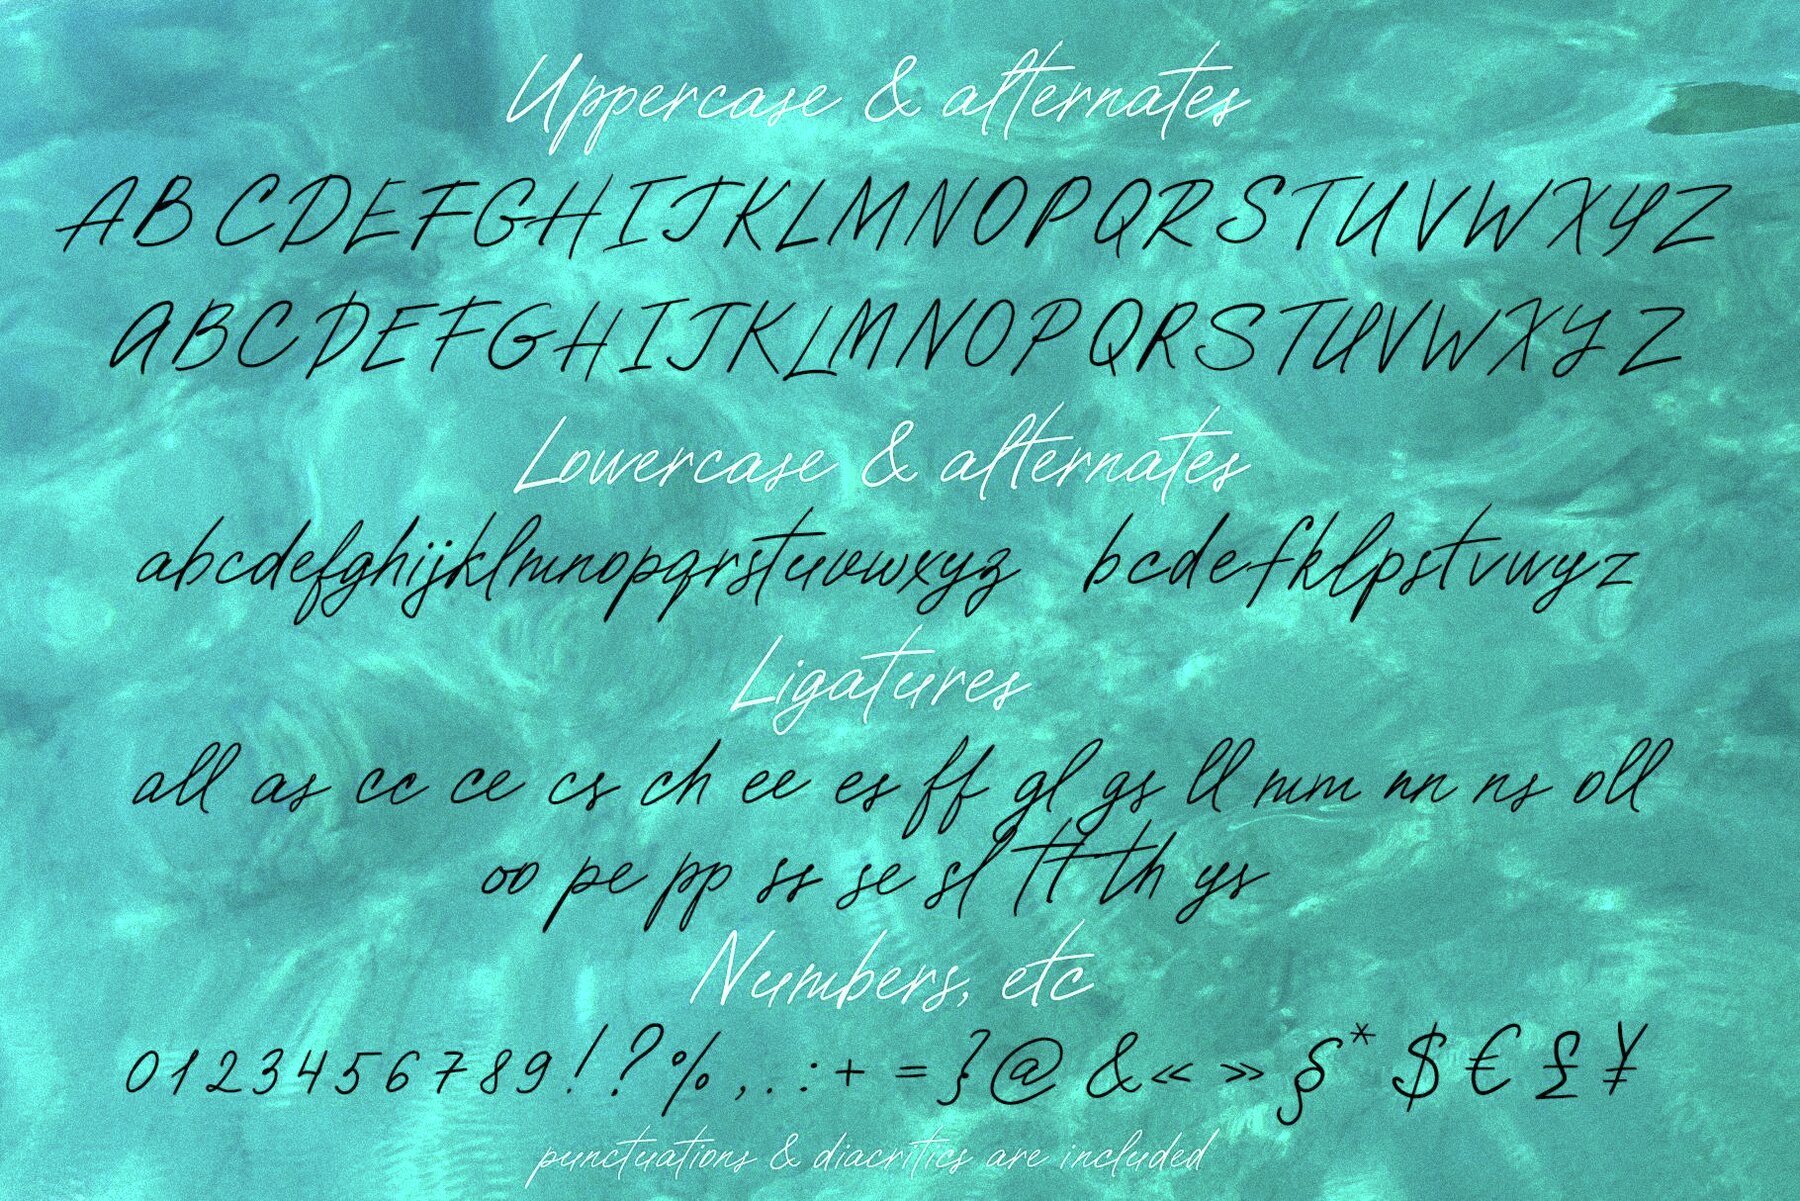 Uppercase & alternates
ABCDEFGHIJKLMNOPQRSTUVWXYZ
ABCDEFGHIJKLMNOPQRSTUVWXYZ
Lowercase & alternates
abcdefghijklmnopqrstuvwxyz bcdefklpstvwyz
Ligatures
all as cc ce cs ch ee es ff gl gs ll mm nn ns oll
oo pe pp ss se sl tt th ys
Numbers, etc
0123456789!?%,.:+=}@&«»§*$€£¥
punctuations & diacritics are included